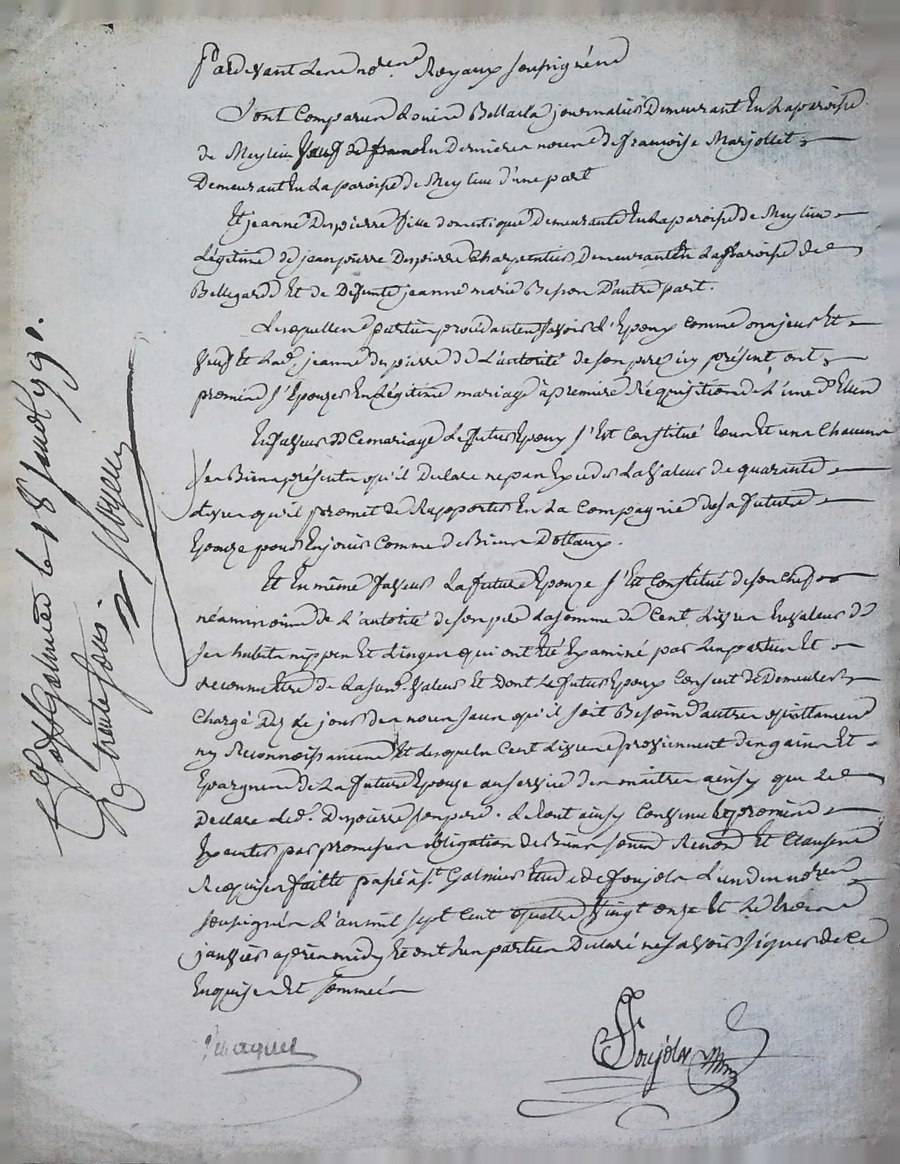 Pardevant les no.res Royaux soussignés
Sont Comparus Bellacla journalier Demeurant En la paroisse
de Meylieu Veuf de En Dernieres noces De francoise Marjollet
Demeurant En la paroisse de Meylieu d'une part
Et jeanne Depierre fille domestique Demeurante En la paroisse de Meylieu
Légitime de jeanpierre Depierre Charpentier Demeurant En La Paroisse de
Bellegarde Et de Défunte jeanne marie Besson D'autre part.
Lesquelles parties procédantes savoir l'Epoux Comme majeur Et
Veuf Et lad. jeanne depierre de L'autorité de son pere icy présent ont
promis s'Epouser En Légitime mariage à première Réquisition de L'une d'Elles
En faveur de Ce mariage Le futur Epoux s'Est Constitué tous Et uns Chacuns
ses Biens présents qu'il Declare ne pas Exceder La Valeur de quarante
Livres qu'il promet de Rapporter En La Compagnie de sa future
Epouze pour En jouir Comme de Biens Dottaux.
Et En même faveur La future Epouze s'Est Constitué de son Chef
néammoins de L'autorité de son pere La somme de Cent Livres En valeur de
ses habits nippes Et Linges qui ont Eté Examiné par Les parties Et
reconnus Etre de La susd. Valeur Et Dont Le futur Epoux Consent de Demeurer
Chargé Dez Le jour des noces sans qu'il soit Besoin d'autres quittances
ny Reconnoissances Et Lesquels Cent Livres proviennent des gains Et
Epargnes de La future Epouze au service des maîtres ainsy que Le
Declare Led. Depierre son pere. Le tout ainsy Convenu Et promis
Executer par promesses obligation de Biens soumis Renon. Et Clauses
Requises faitte passé à St. Galmier Etude de Foujols L'un des no.res
soussignés L'an mil sept Cent quatre Vingt onze Et Le treize
janvier après midy Et ont Les parties Déclaré ne savoir signer de Ce
Enquises Et sommées
Foujols
St Galmier le 18 janvr 1791.
R trente sous